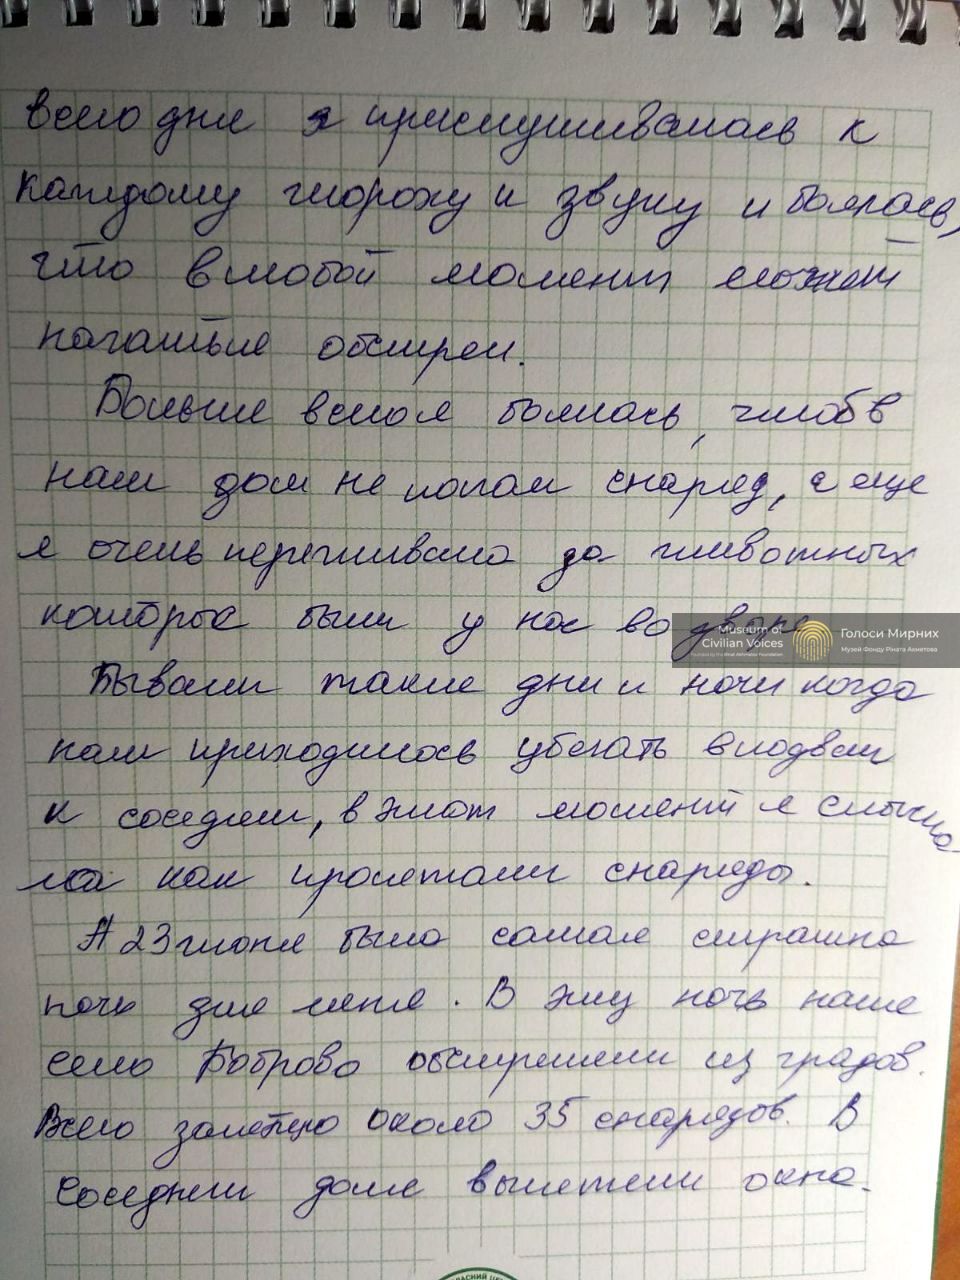 всего дня я прислушивалась к
каждому шороху и звуку и боялась,
что в любой момент может
начаться обстрел.
Больше всего я боялась, чтоб в
наш дом не попал снаряд, а еще
я очень переживала за животных
которые были у нас во дворе
Museum of
Civilian Voices
Голоси Мирних
Музей Фонду Ріната Ахметова
Бывали такие дни и ночи когда
нам приходилось убегать в подвал
к соседям, в этот момент я слыша
ла как пролетали снаряды.
А 23 июня была самая страшна
ночь для меня. В эту ночь наше
село Боброво обстреляли из градов.
Всего залетело около 35 снарядов. В
соседнем доме вылетели окна.